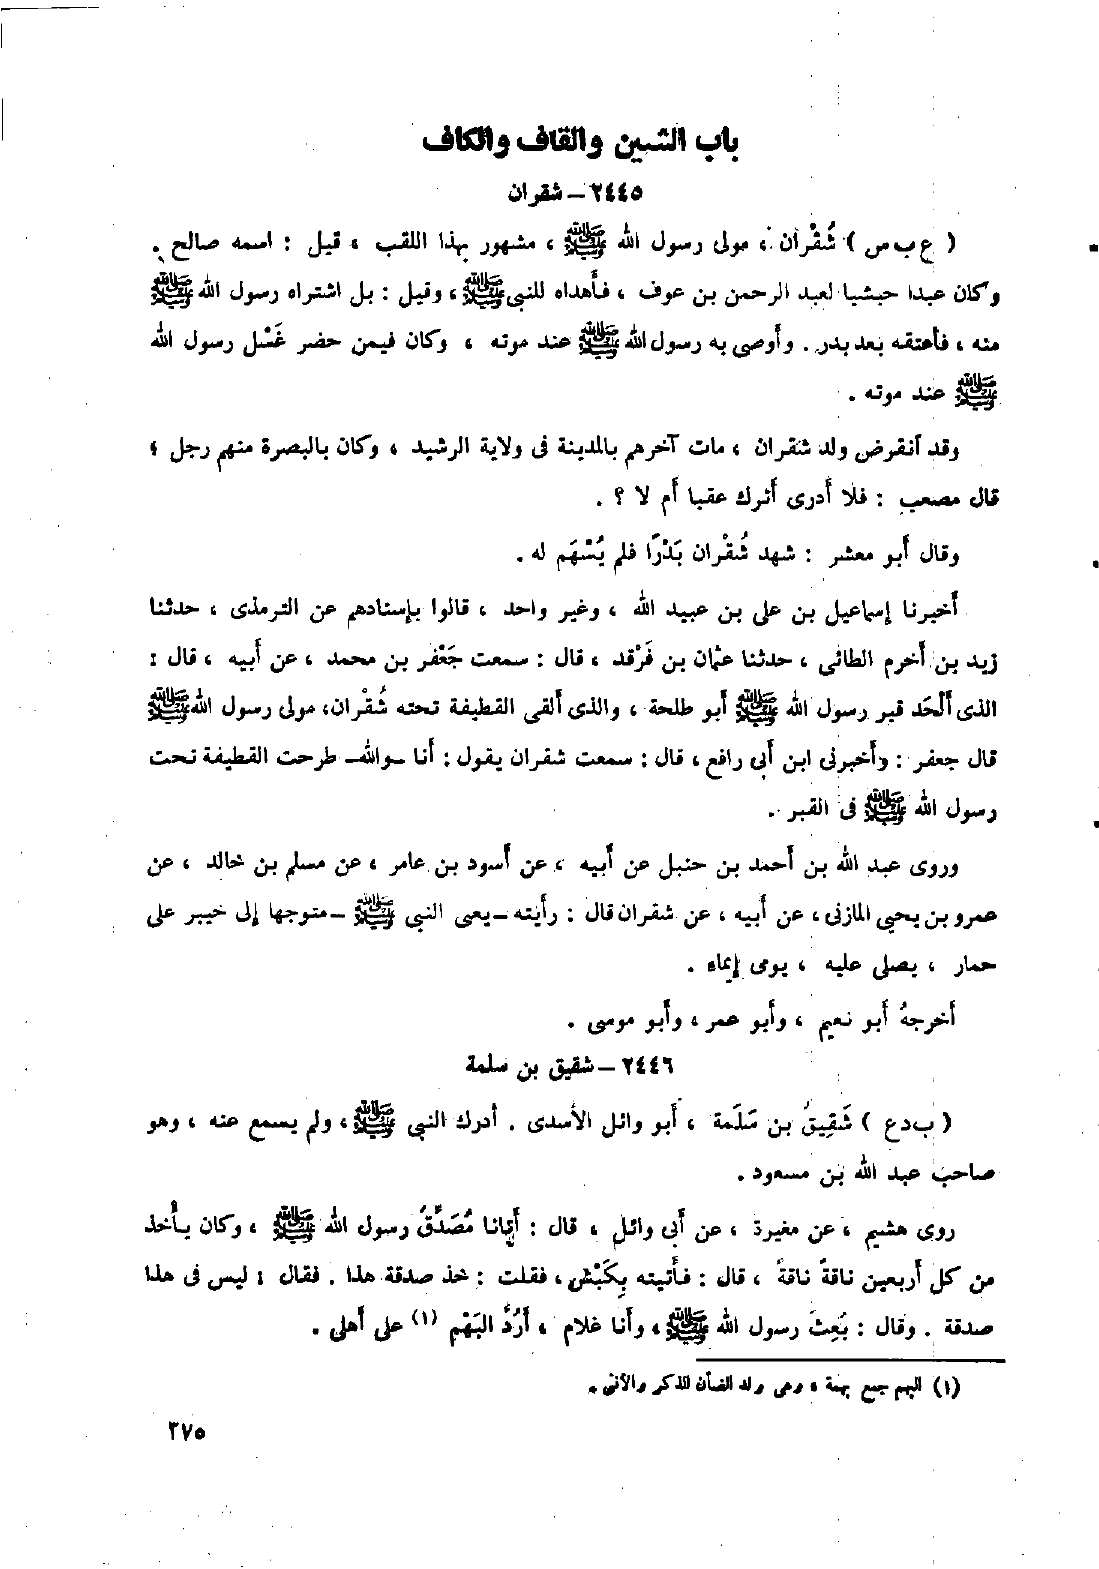 باب الشين والقاف والكاف
٢٤٤٥ – شقران
( ع ب س ) شُقْران ، مولى رسول الله ﷺ ، مشهور بهذا اللقب ، قيل : اسمه صالح .
وكان عبدا حبشيا لعبد الرحمن بن عوف ، فأهداه للنبي ﷺ ، وقيل : بل اشتراه رسول الله ﷺ
منه ، فأعتقه بعد بدر . وأوصى به رسول الله ﷺ عند موته ، وكان فيمن حضر غَسْل رسول الله
ﷺ عند موته .
وقد انقرض ولد شقران ، مات آخرهم بالمدينة فى ولاية الرشيد ، وكان بالبصرة منهم رجل ؛
قال مصعب : فلا أدرى أترك عقبا أم لا ؟ .
وقال أبو معشر : شهد شُقْران بَدْرًا فلم يُسْهَم له .
أخبرنا إسماعيل بن على بن عبيد الله ، وغير واحد ، قالوا بإسنادهم عن الترمذى ، حدثنا
زيد بن أخرم الطائى ، حدثنا عثمان بن فَرْقد ، قال : سمعت جَعْفر بن محمد ، عن أبيه ، قال :
الذى أَلْحَد قبر رسول الله ﷺ أبو طلحة ، والذى ألقى القطيفة تحته شُقْران، مولى رسول الله ﷺ
قال جعفر : وأخبرنى ابن أبى رافع ، قال : سمعت شقران يقول : أنا –والله– طرحت القطيفة تحت
رسول الله ﷺ فى القبر .
وروى عبد الله بن أحمد بن حنبل عن أبيه ، عن أسود بن عامر ، عن مسلم بن خالد ، عن
عمرو بن يحيى المازنى ، عن أبيه ، عن شقران قال : رأيته –يعنى النبي ﷺ –متوجها إلى خيبر على
حمار ، يصلى عليه ، يومى إيماء .
أخرجهُ أبو نعيم ، وأبو عمر ، وأبو موسى .
٢٤٤٦ – شقيق بن سلمة
( ب د ع ) شَقِيقُ بن سَلَمة ، أبو وائل الأسدى . أدرك النبي ﷺ ، ولم يسمع عنه ، وهو
صاحب عبد الله بن مسعود .
روى هشيم ، عن مغيرة ، عن أبى وائل ، قال : أتانا مُصَدِّقُ رسول الله ﷺ ، وكان يأخذ
من كل أربعين ناقةً ناقةً ، قال : فأتيته بِكَبْش ، فقلت : خذ صدقة هذا . فقال : ليس فى هذا
صدقة . وقال : بُعِثَ رسول الله ﷺ ، وأنا غلام ، أَرُدُّ البَهْم (١) على أهلى .
(١) البهم جمع بهمة ، وهى ولد الضأن للذكر والأنثى .
٣٧٥